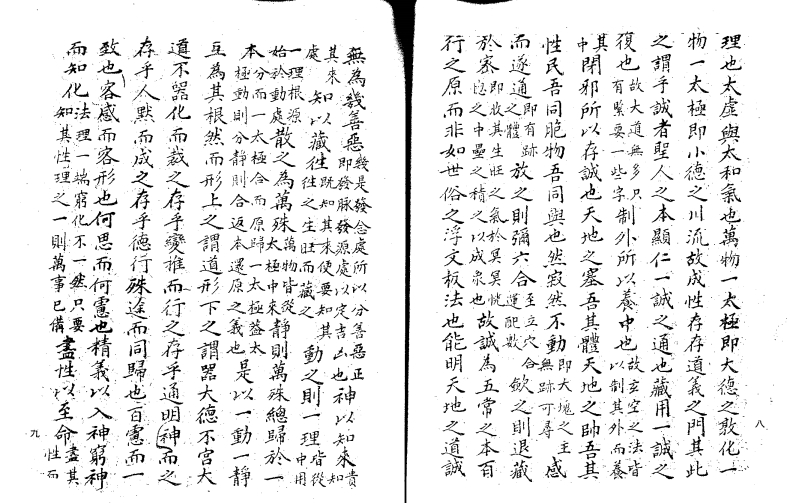 理也太虛與太和氣也萬物一太極即大德之敦化一
物一太極即小德之川流故成性存存道義之門其此
之謂乎誠者聖人之本顯仁一誠之通也藏用一誠之
復也故大道無多只有緊要一些字制外所以養中也故玄空之法皆以制其外而養
其中閉邪所以存誠也天地之塞吾其體天地之帥吾其
性民吾同胞物吾同與也然寂然不動即大塊之主無跡可尋感
而遂通即有跡之體放之則彌六合至立穴合運配數斂之則退藏
於密即收其生旺之氣於冥冥恍惚之中壘之積之以成泉也故誠為五常之本百
行之原而非如世俗之浮文板法也能明天地之道誠
八
無為幾善惡幾是發念處所以分善惡正即發脉發源處以定吉凶也神以知來貴知
其來處知以藏往既知其來便要知其往之生旺而藏之動之則一理皆從中用
一理根源始於動處散之為萬殊萬物皆從太極中來靜則萬殊總歸於一
本分而一太極合而原歸一太極蓋太極動則分靜則合返本還原之義也是以一動一靜
互為其根然而形上之謂道形下之謂器大德不官大
道不器化而裁之存乎變推而行之存乎通明神而之
存乎人默而成之存乎德行殊途而同歸也百慮而一
致也容感而容形也何思而何慮也精義以入神窮神
而知化法理一端窮化不一然只要知其性理之一則萬事已備盡性以至命盡其性而
九